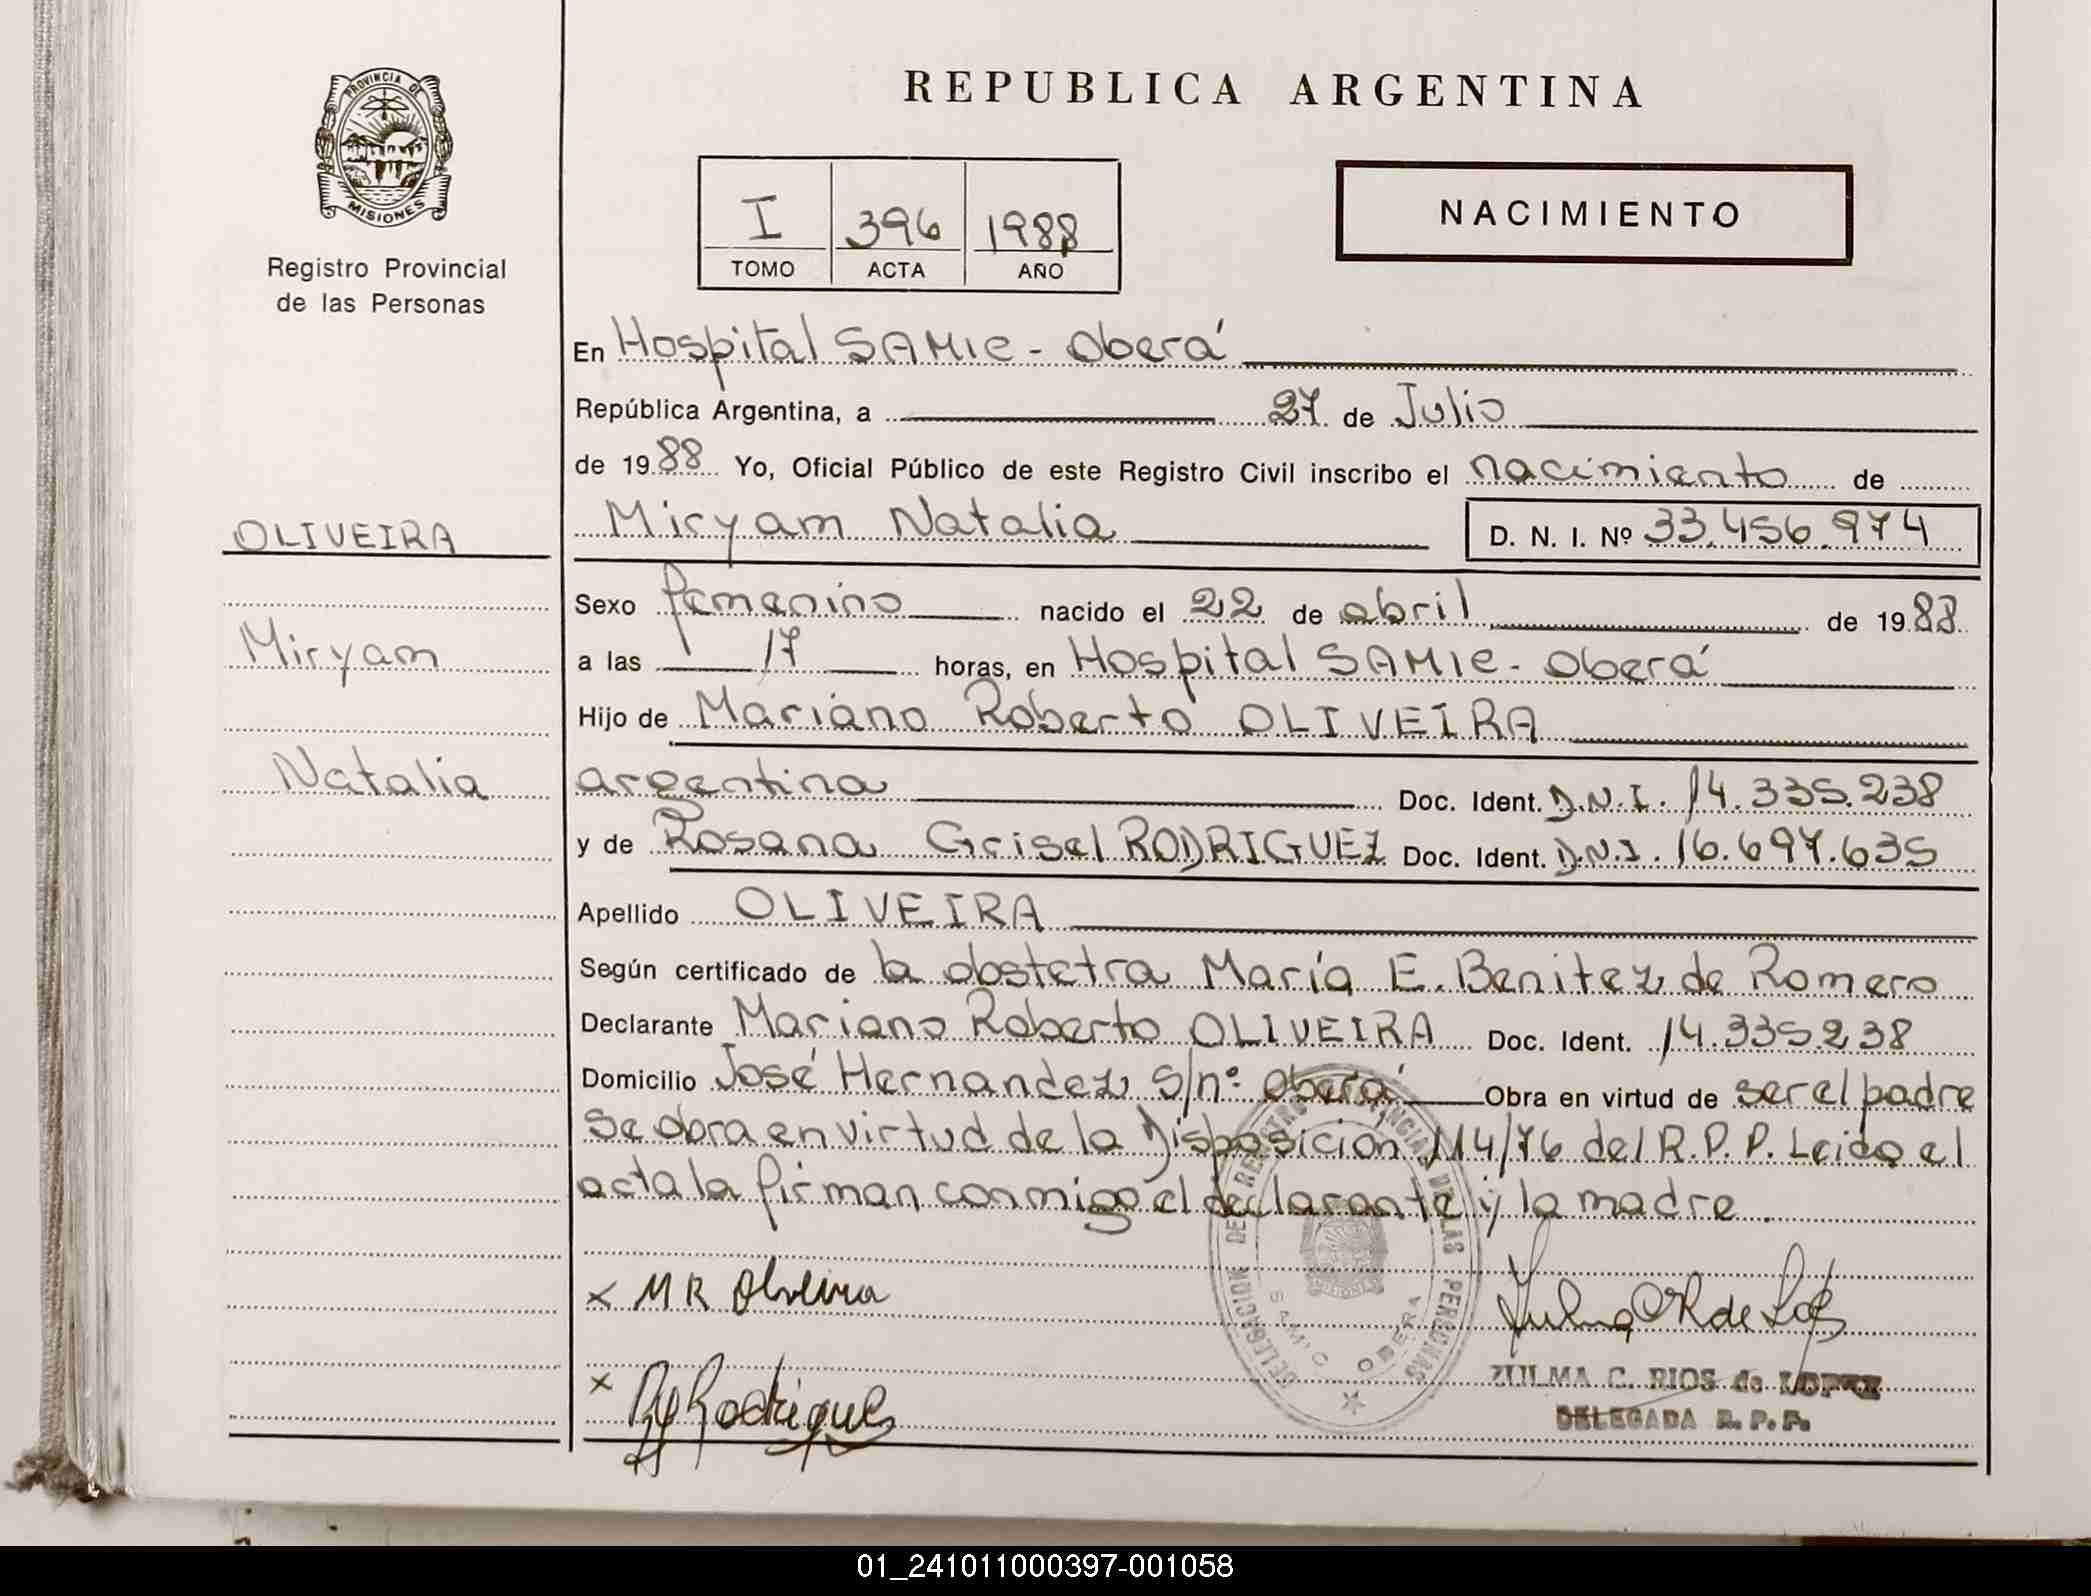 PROVINCIA DE
MISIONES
Registro Provincial
de las Personas
REPUBLICA ARGENTINA
I 396 1988
TOMO ACTA AÑO
NACIMIENTO
En Hospital SAMIC - Oberá
República Argentina, a 27 de Julio
de 1988 Yo, Oficial Público de este Registro Civil inscribo el nacimiento de
OLIVEIRA
Miryam Natalia D. N. I. Nº 33.456.974
Sexo femenino nacido el 22 de abril de 1988
Miryam
a las 17 horas, en Hospital SAMIC - Oberá
Hijo de Mariano Roberto OLIVEIRA
Natalia
argentina Doc. Ident. D.N.I. 14.335.238
y de Rosana Grisel RODRIGUEZ Doc. Ident. D.N.I. 16.697.635
Apellido OLIVEIRA
Según certificado de la obstetra María E. Benitez de Romero
Declarante Mariano Roberto OLIVEIRA Doc. Ident. 14.335.238
Domicilio José Hernandez s/nº Oberá Obra en virtud de ser el padre
Se obra en virtud de la Disposición 114/76 del R.P.P. Leido el
acta la firman conmigo el declarante y la madre.
DELEGACION DEL REGISTRO PROVINCIAL DE LAS PERSONAS
SAMIC OBERA
x M R Oliveira
x Rodriguez
ZULMA C. RIOS de LOPEZ
DELEGADA R. P. P.
01_241011000397-001058